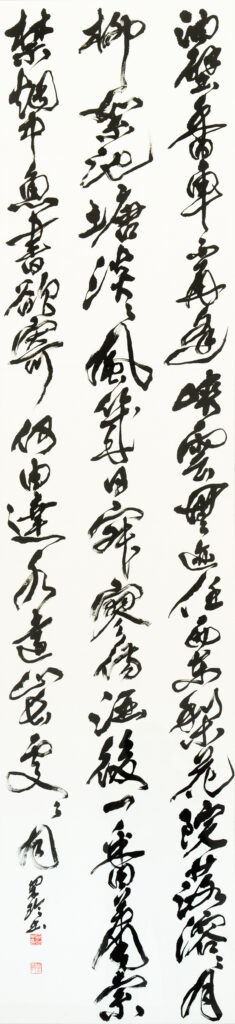 油壁香車不再逢峽雲無迹任西東梨花院落溶々月
柳絮池塘淡々風幾日寂寥傷酒後一番蕭索
禁烟中魚書欲寄何由達水遠山長處々同